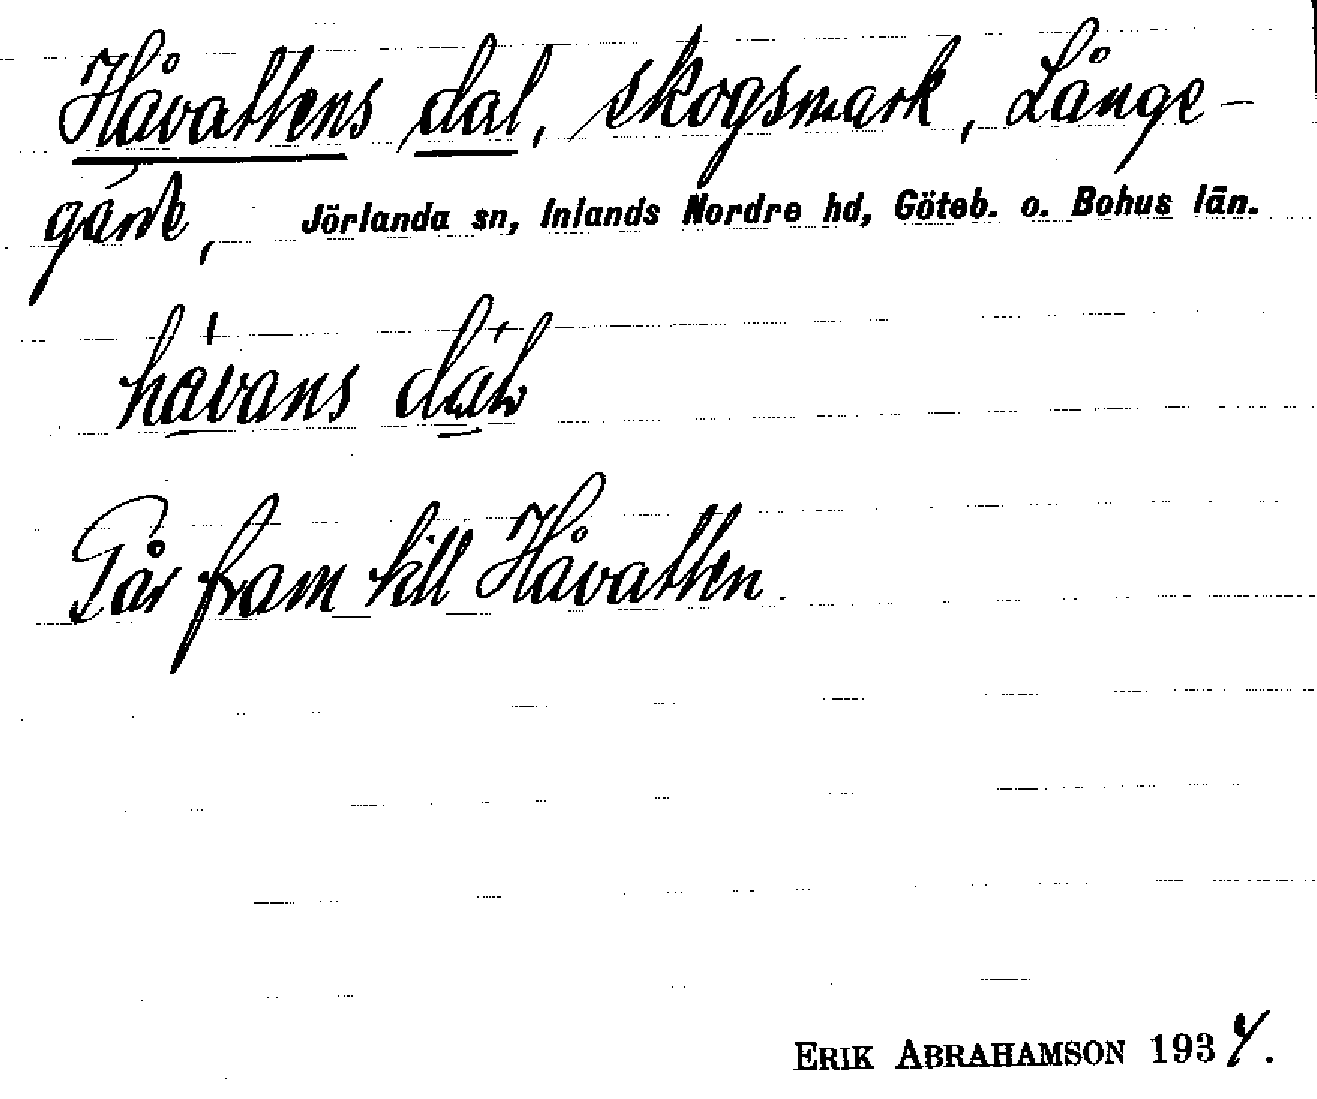 Håvattens dal, skogsmark, Långe-
gärde, Jörlanda sn, Inlands Nordre hd, Göteb. o. Bohus län.
hàvans
Går fram till Håvatten.
ERIK ABRAHAMSON 1934.